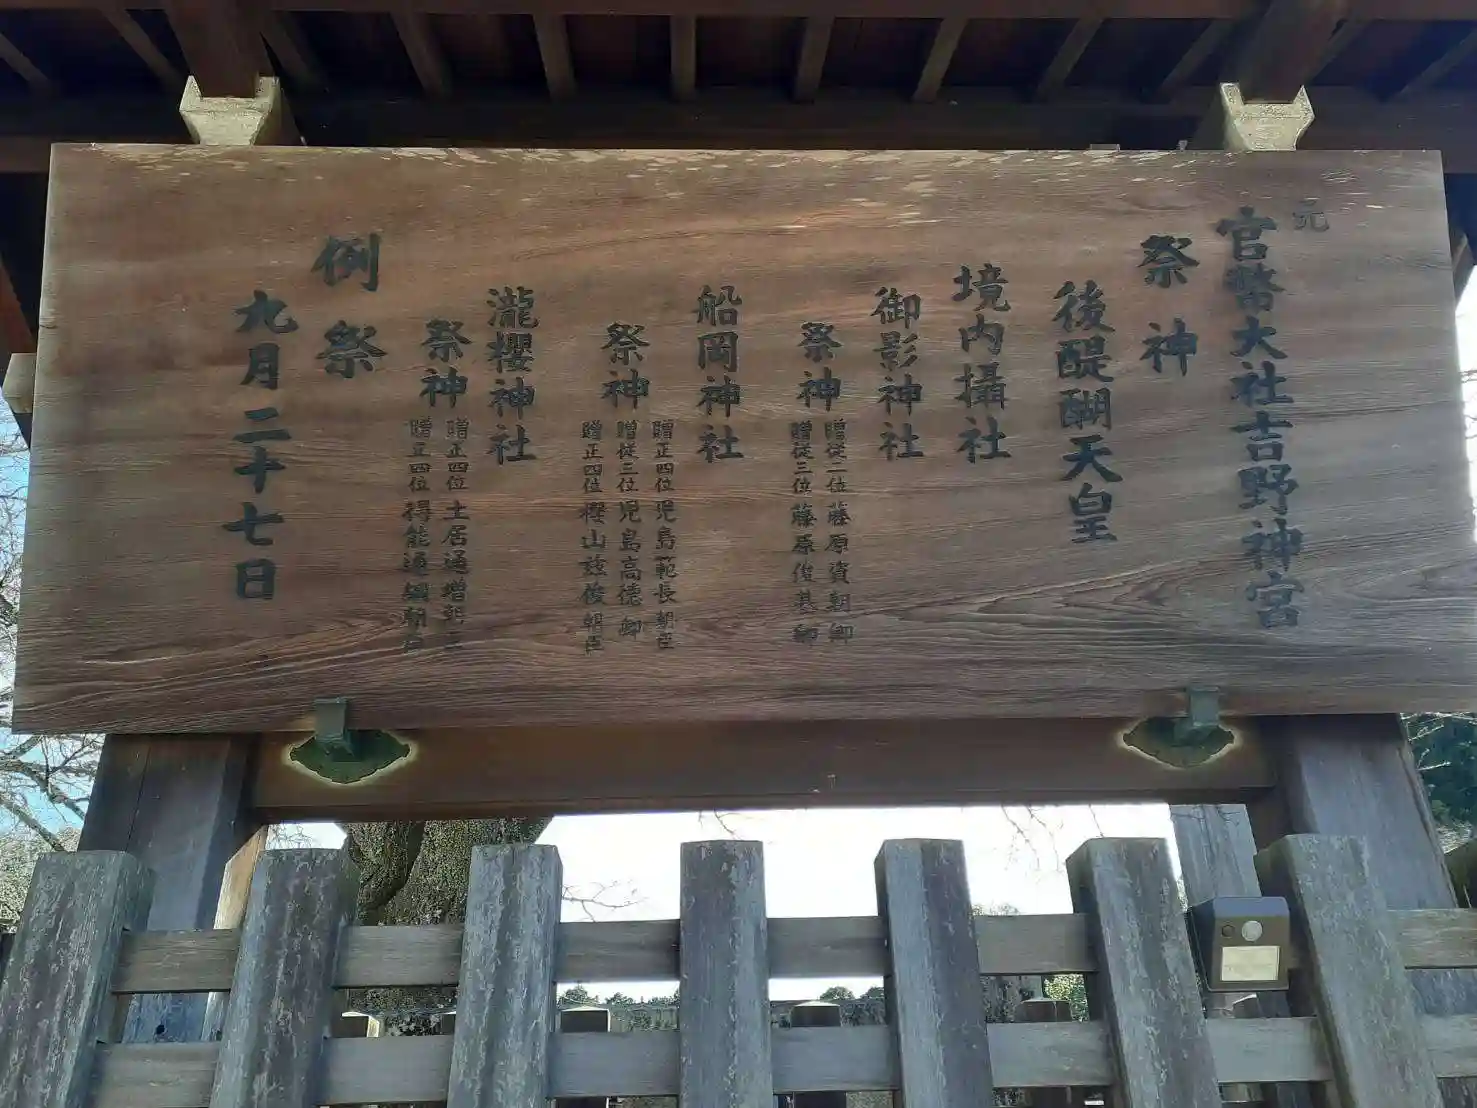 元
官幣大社吉野神宮
祭神
後醍醐天皇
境内攝社
御影神社
祭神
贈従二位藤原資朝卿
贈従三位藤原俊基卿
船岡神社
祭神
贈正四位児島範長朝臣
贈従三位児島高德卿
贈正四位櫻山茲俊朝臣
瀧櫻神社
祭神
贈正四位土居通増朝臣
贈正四位得能通綱朝臣
例祭
九月二十七日